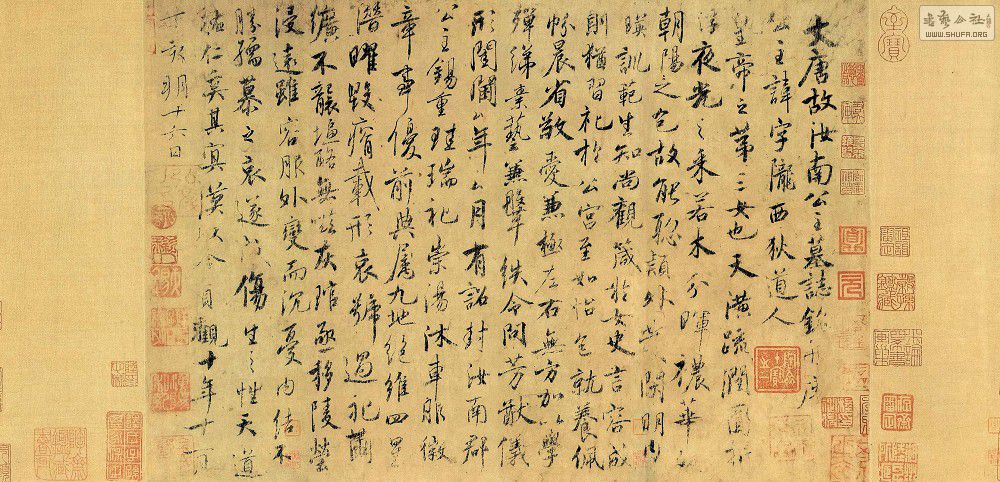 大唐故汝南公主墓誌銘并序
公主諱字隴西狄道人
皇帝之第三女也天潢疏潤圓折
浮夜光之采若木分暉穠華
朝陽之色故能聰穎外發閑明內
暎訓範生知尚觀箴於女史言容成
則猶習礼於公宮至如怡色就養佩
帉晨省敬愛兼極左右無方加以學
殫綈素藝兼鞶紩令問芳猷儀
形閨閫年月有詔封汝南郡
公主錫重珪瑞礼崇湯沐車服徽
章事優前典属九地絕維四星
潛曜毀瘠載形哀號過礼繭
纊不襲塩酪無嗞灰琯亟移陵塋
浸遠雖容服外變而沉憂內結不
勝孺慕之哀遂成傷生之性天道
祐仁奚其冥漠以今貞觀十年十一月
丁亥朔十六日
书艺公社
WWW.SHUFA.ORG